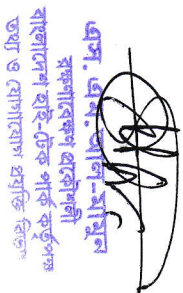 এস. এম. আল-মামুন
রক্ষণাবেক্ষণ প্রকৌশলী
বাংলাদেশ হাই-টেক পার্ক কর্তৃপক্ষ
তথ্য ও যোগাযোগ প্রযুক্তি বিভাগ